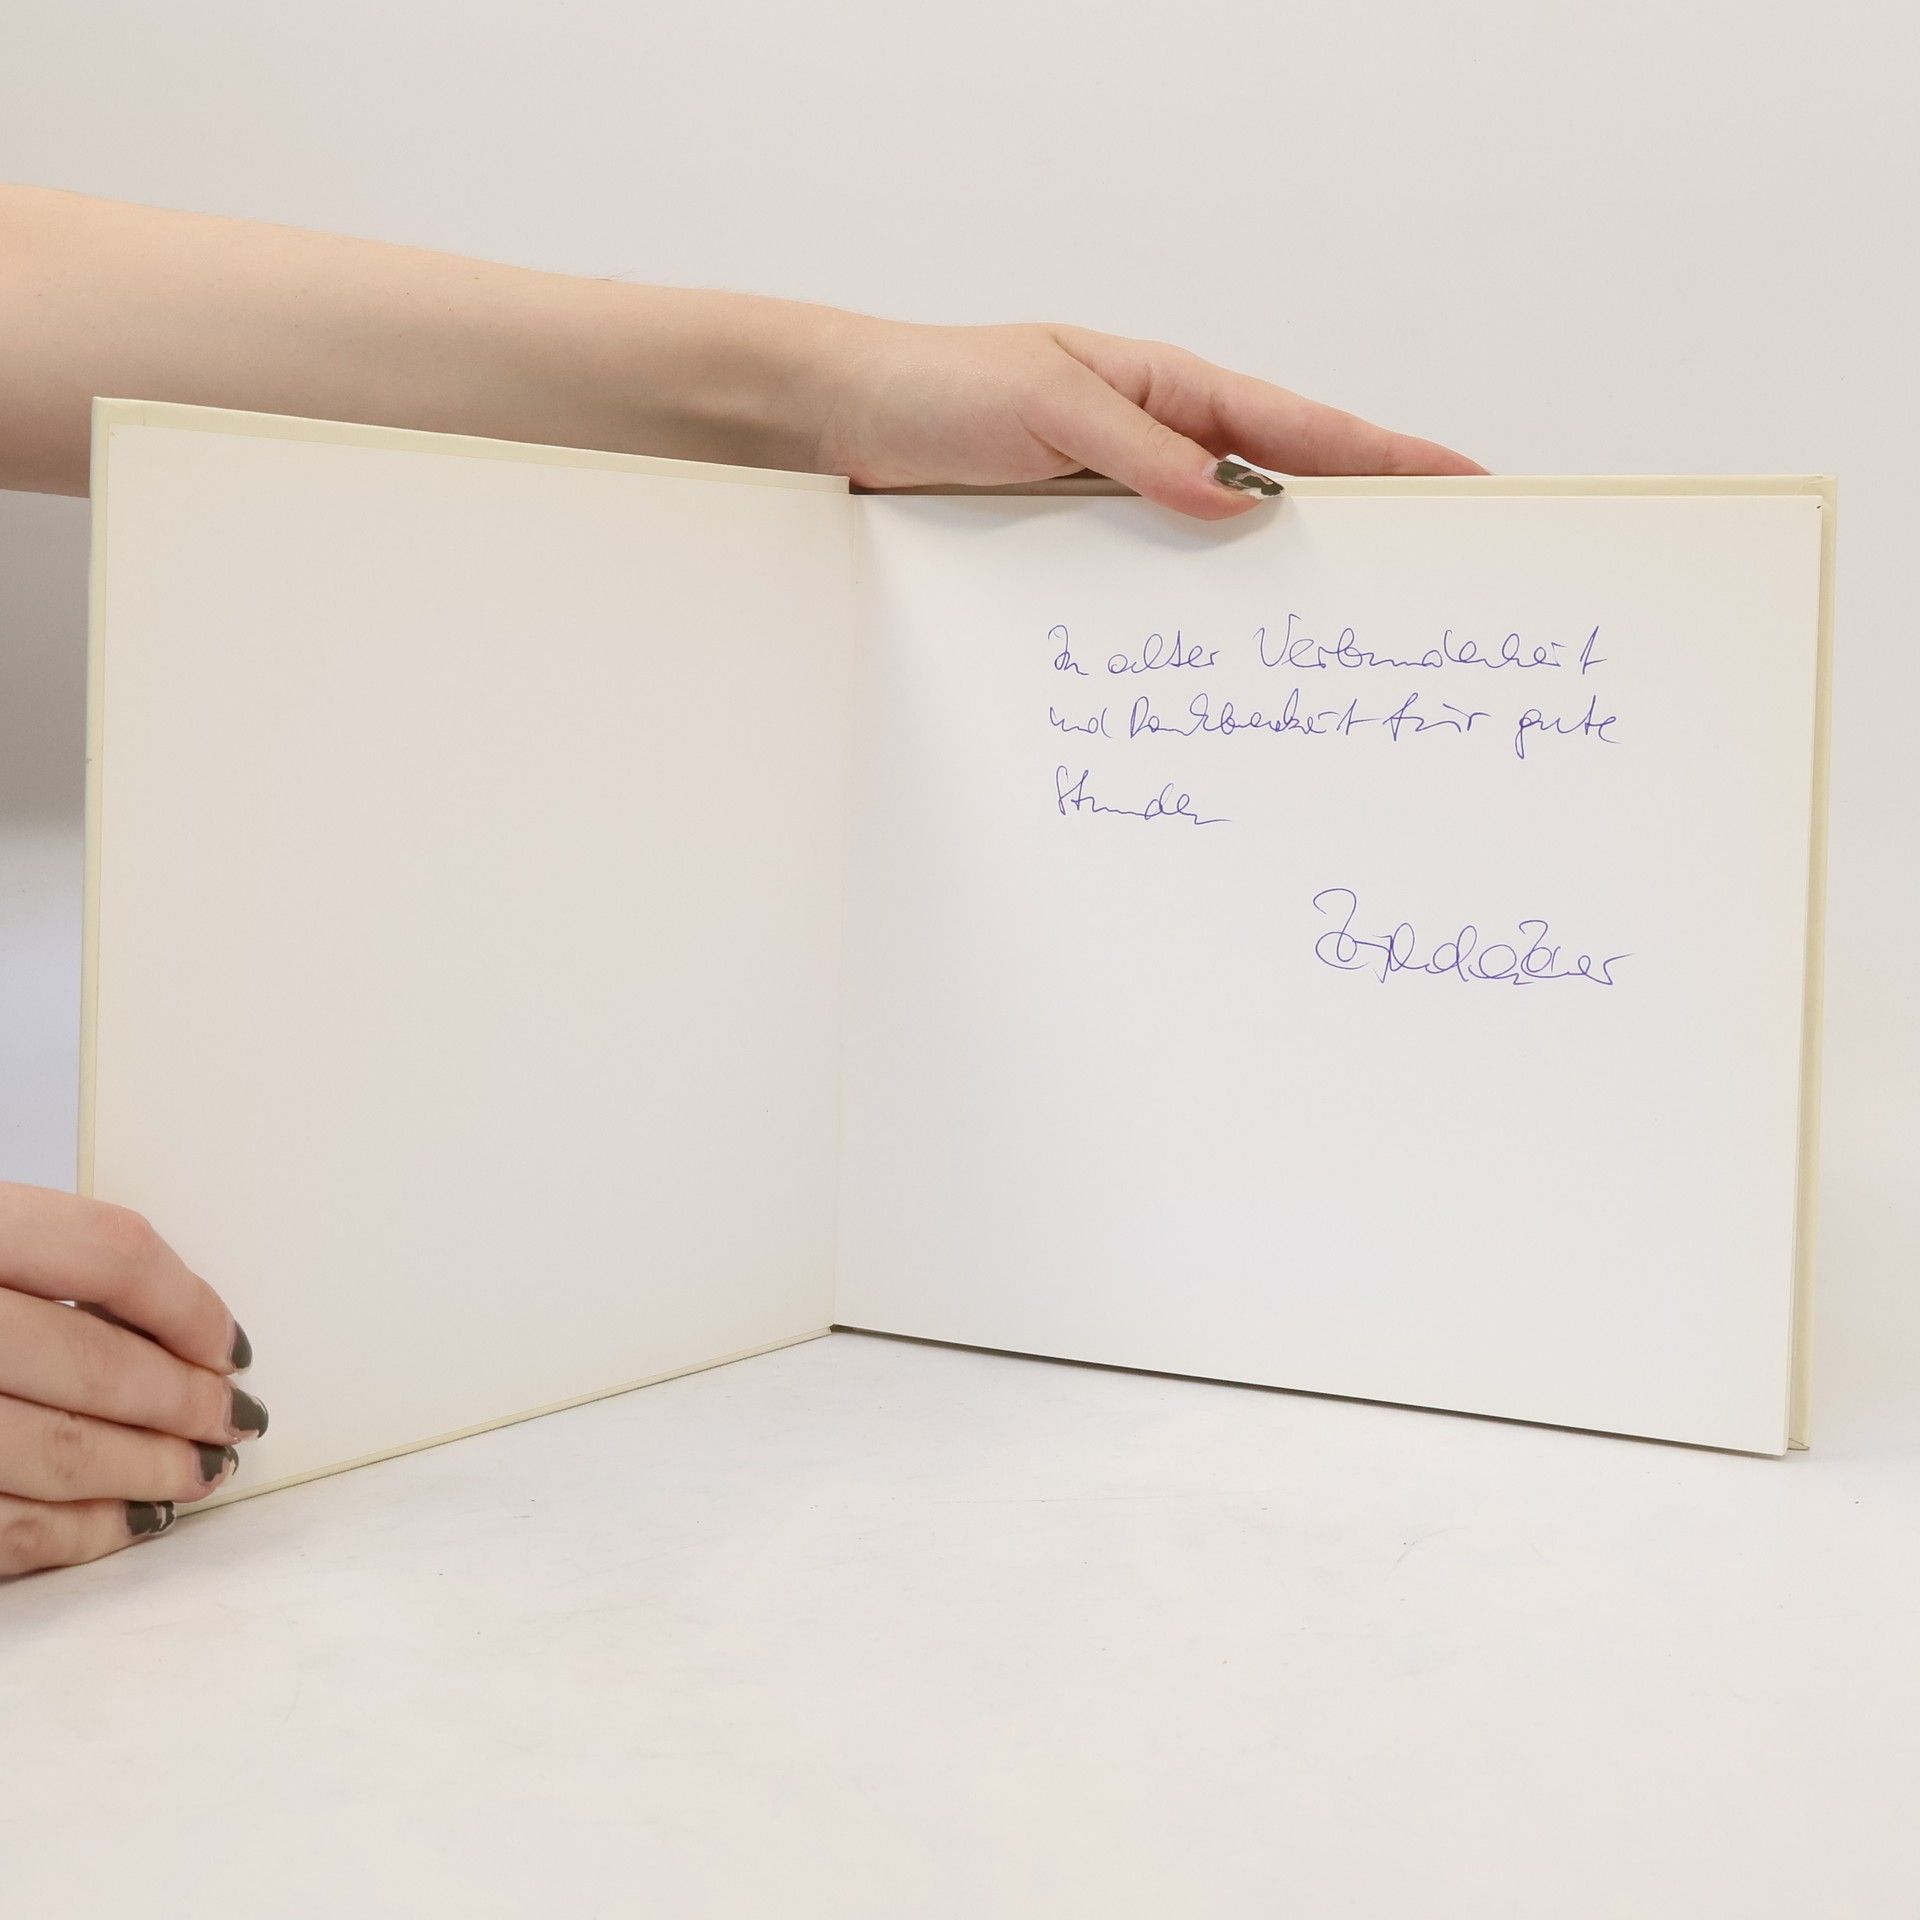 In alter Verbundenheit
und Dankbarkeit für gute
Stunden